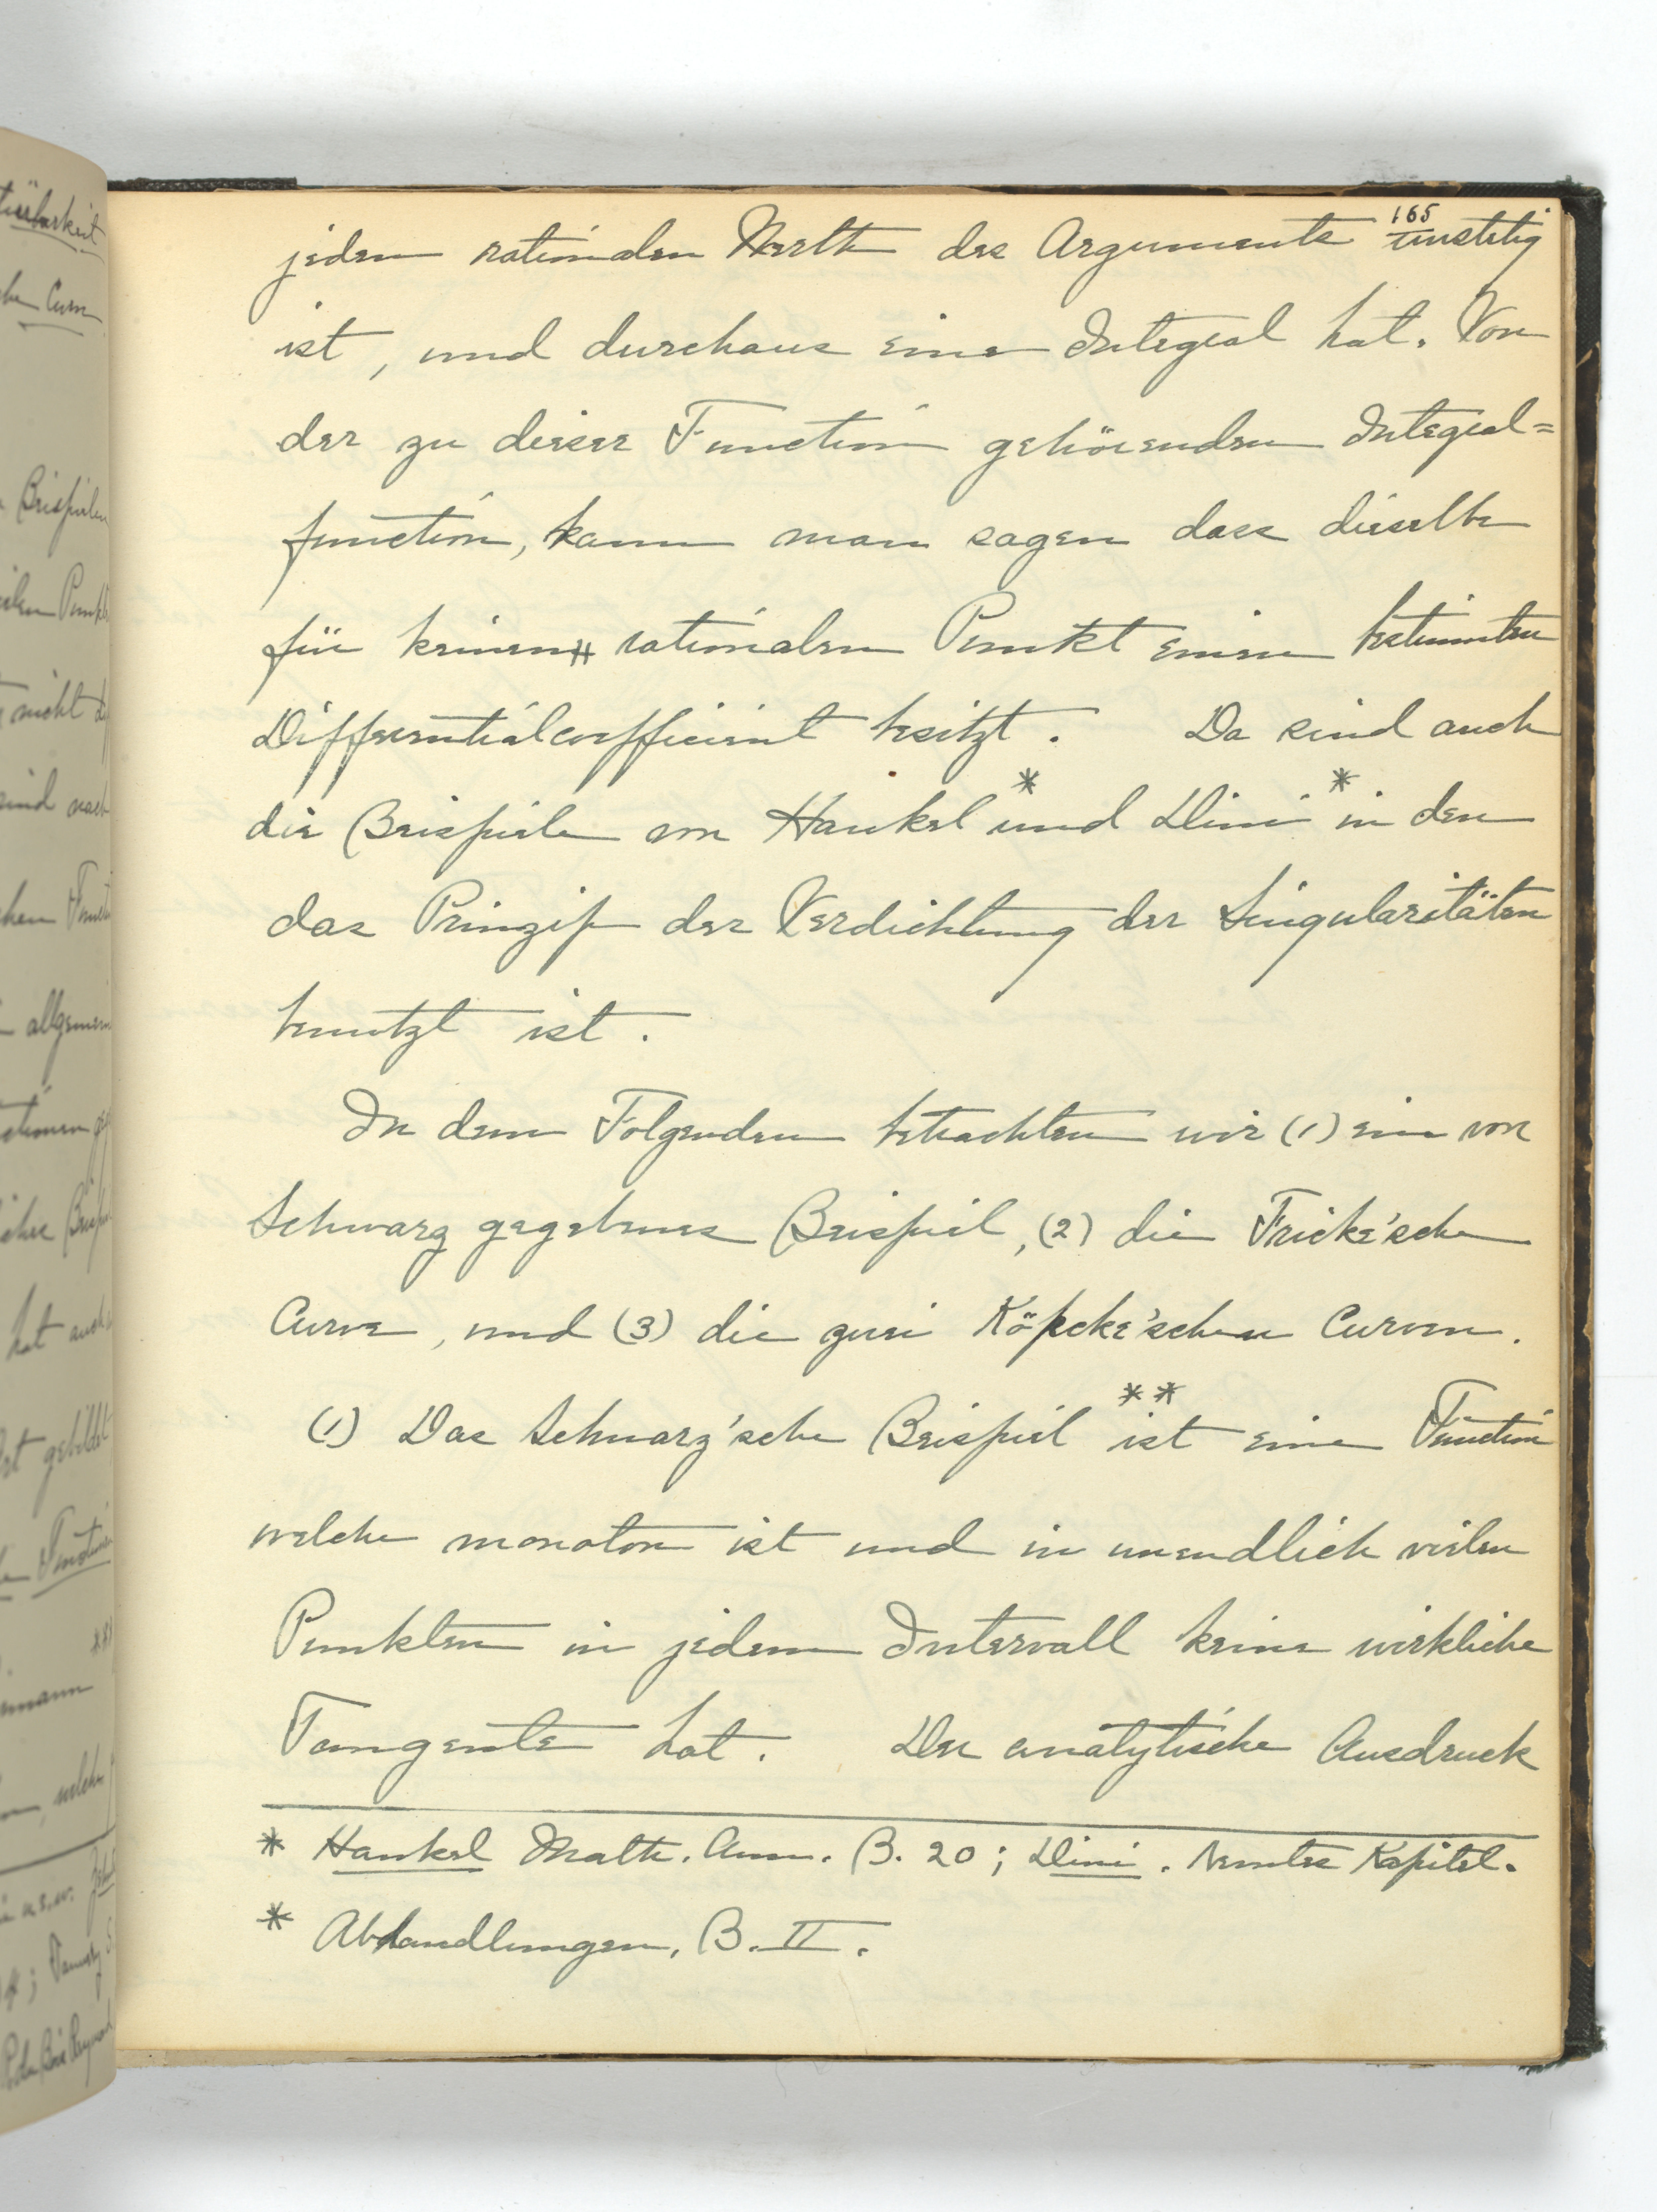 165
jedem rationalen Werth des Arguments unstetig
ist, und durchaus eine Integral hat. Von
der zu dieser Function gehörenden Integral=
function, kann man sagen dass dieselbe
für keinen rationalen Punkt einen bestimmten
Differentialcoefficient besitzt. Da sind auch
die Beispiele von Hankel * und Dini * in den
das Prinzip der Verdichtung der Singularitäten
benutzt ist.
In dem Folgenden betrachten wir (1) ein von
Schwarz gegebenes Beispiel, (2) die Fricke'sche
Curve, und (3) die zwei Köpcke'schen Curven.
(1) Das Schwarz'sche Beispiel ** ist eine Function
welche monoton ist und in unendlich vielen
Punkten in jedem Intervall keine wirkliche
Tangente hat. Der analytische Ausdruck
* Hankel Math. Ann. B. 20; Dini. Neuntes Kapitel.
* Abhandlungen, B. II.